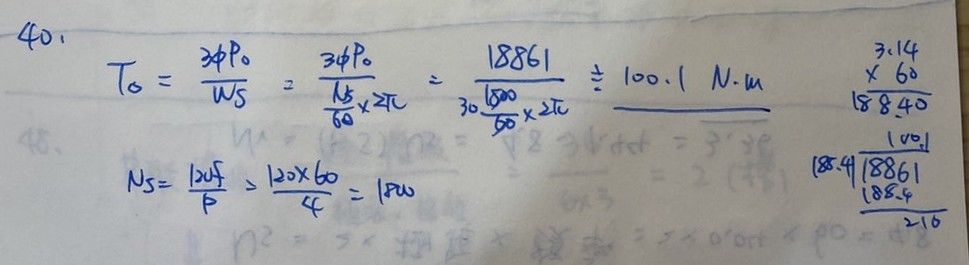 40.
To = 3φPo / Ws = 3φPo / (Ns/60 × 2π) = 18861 / (1800/60 × 2π) ≒ 100.1 N·m
30
Ns = 120f / P = 120×60 / 4 = 1800
3.14
× 60
188.40
100.1
188.4 18861
188.4
210